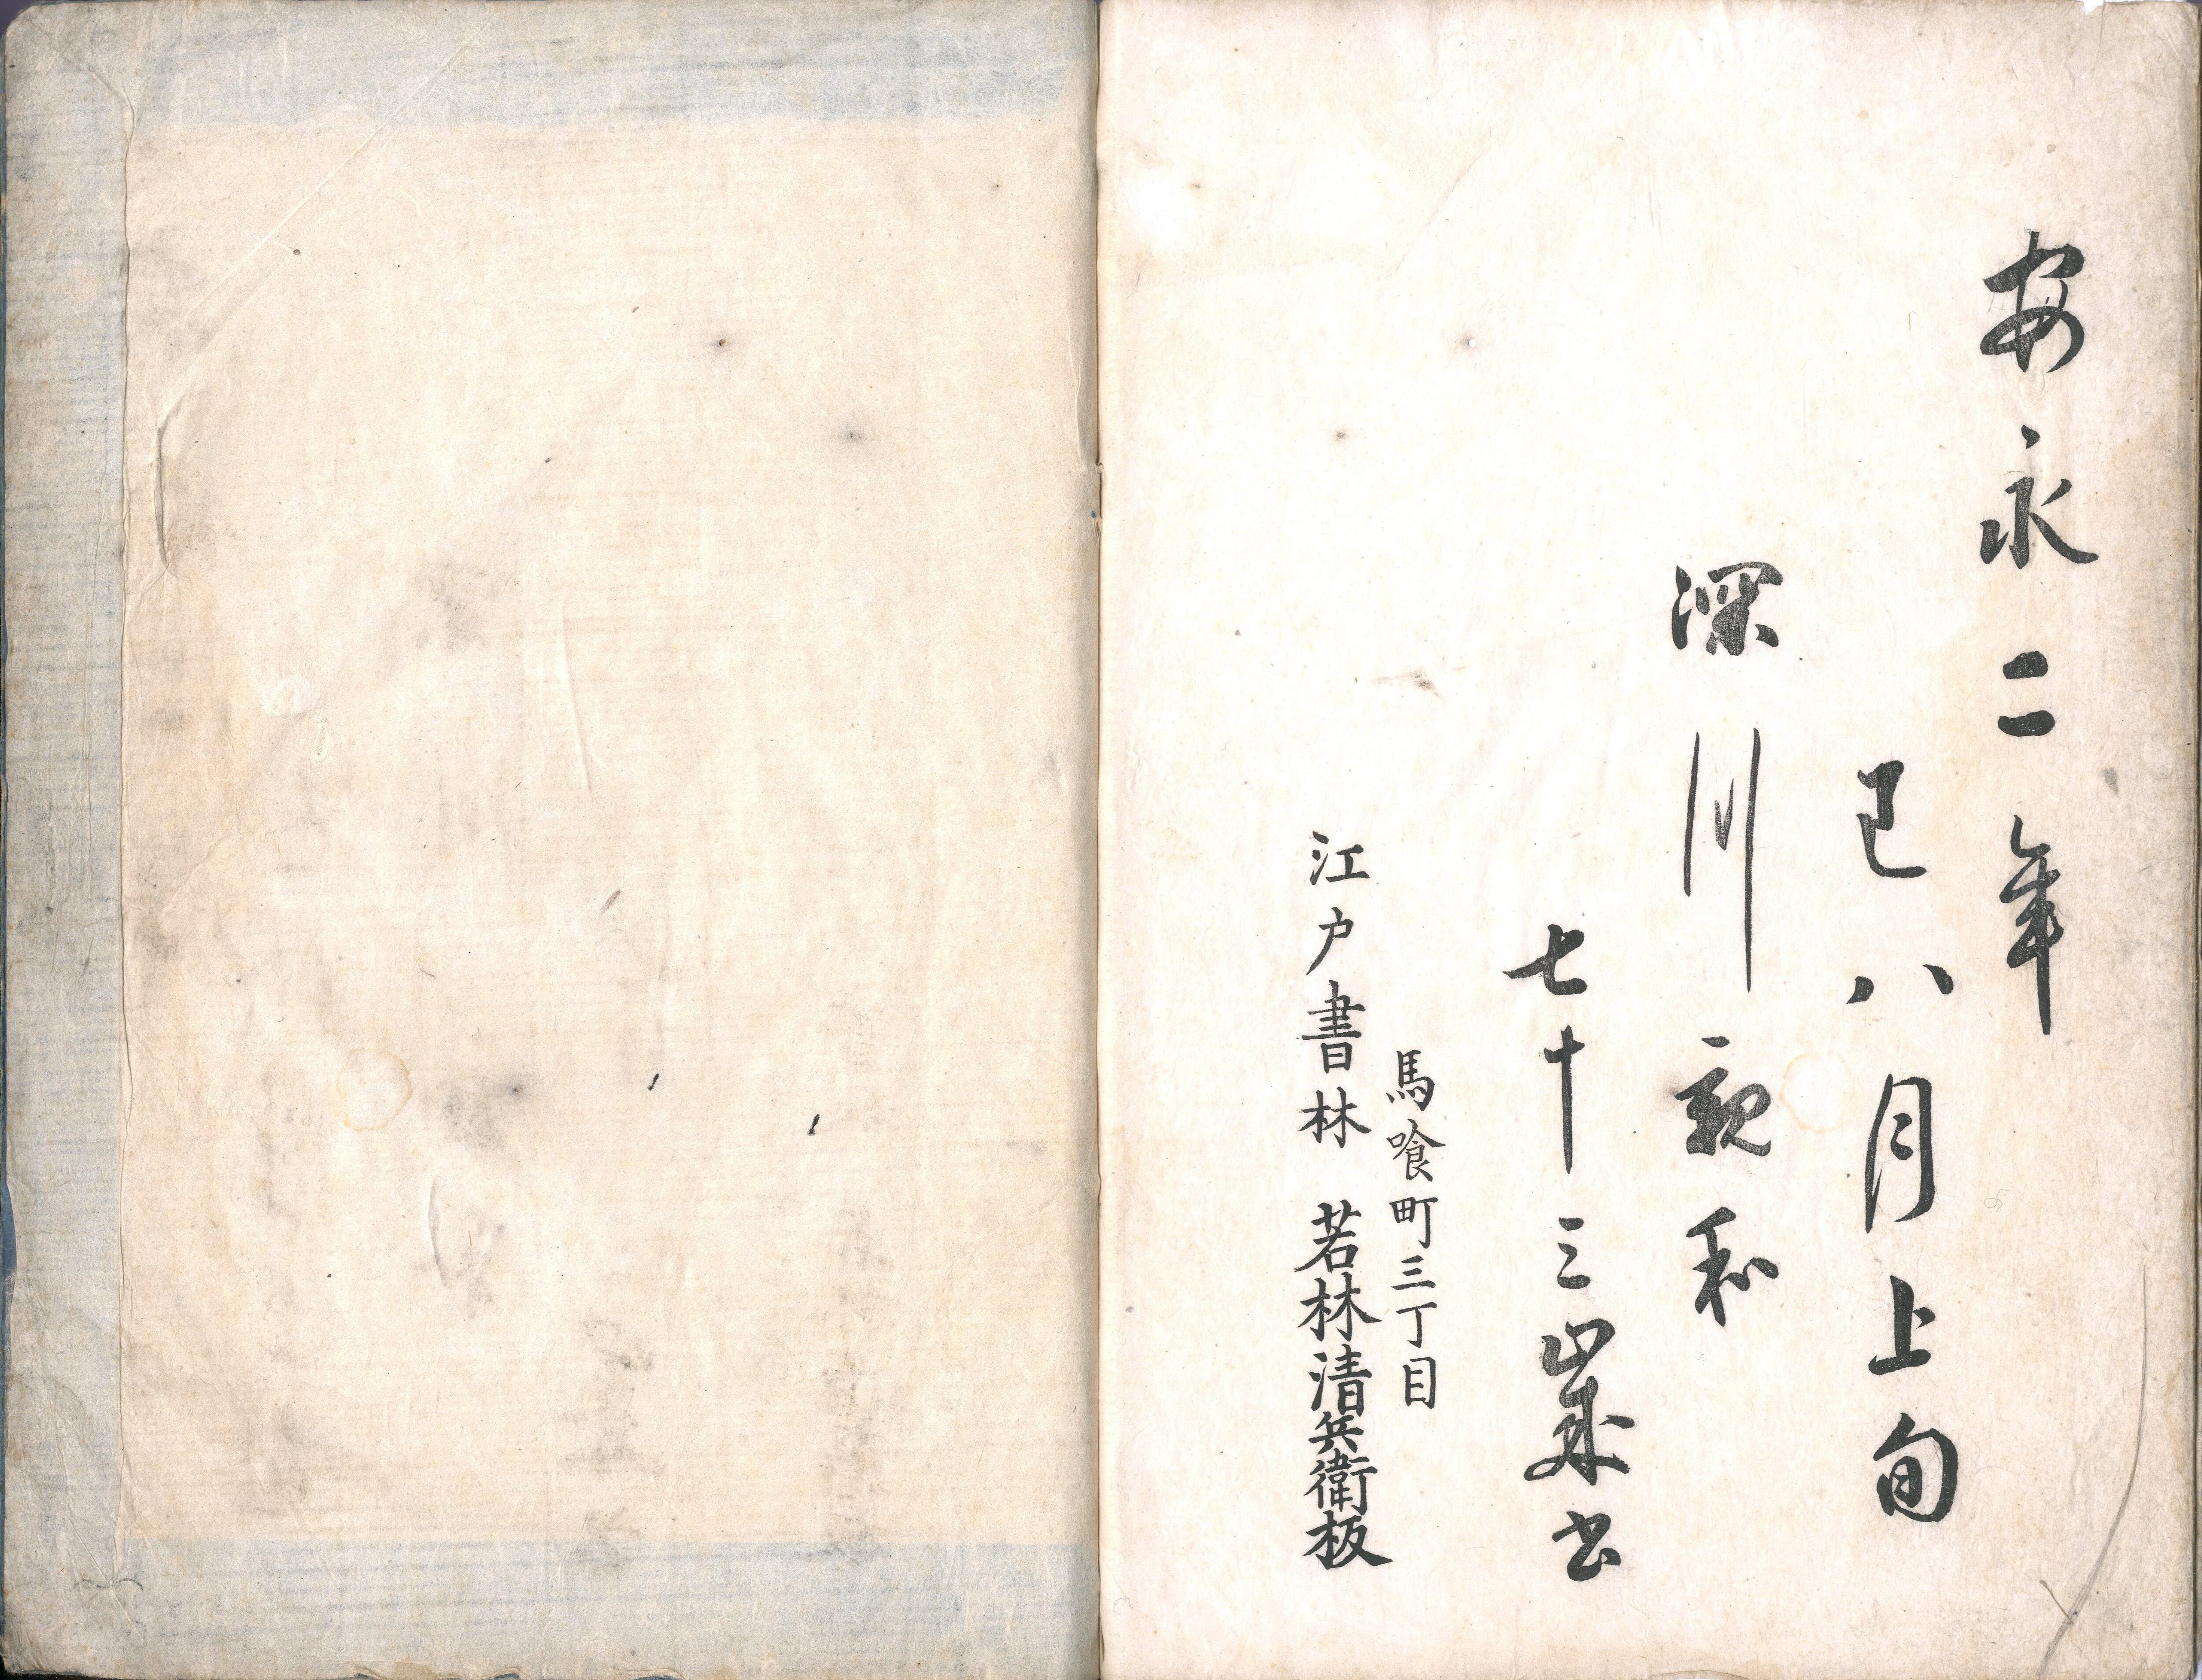 安永二年
巳八月上旬
深川親和
七十三歳書
馬喰町三丁目
江戸書林　若林清兵衛板